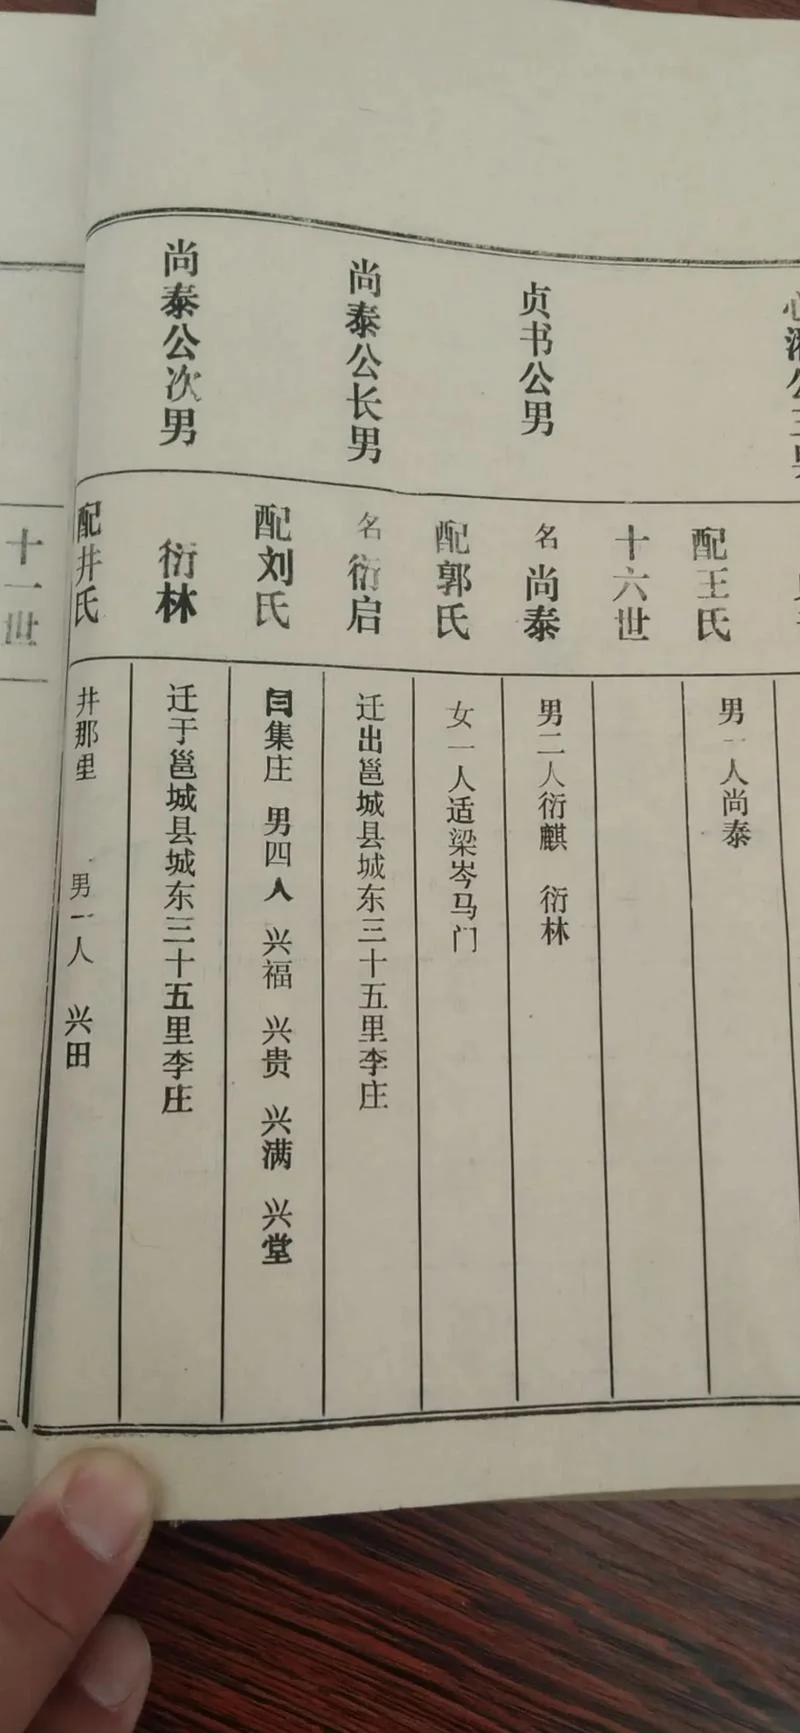 配王氏
男一人尚泰
十六世
贞书公男
名尚泰
男二人衍麒 衍林
配郭氏
女一人适梁岑马门
尚泰公长男
名衍启
迁出邕城县城东三十五里李庄
配刘氏
闫集庄 男四人 兴福 兴贵 兴满 兴堂
尚泰公次男
衍林
迁于邕城县城东三十五里李庄
配井氏
井那里 男一人 兴田
十一世